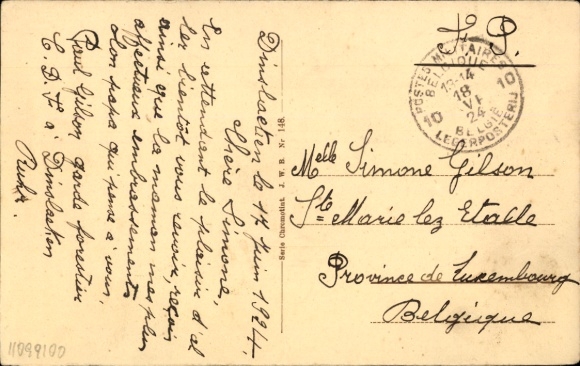 Dinslaeken le 17 Juin 1924.
Chère Simone,
En attendant le plaisir d'al
ler bientôt vous revoir, reçois
ainsi que la maman mes plus
affectueux embrassements
Ton papa qui pense à vous.
Paul Gilson garde forestier
C. D. F. à Dinslaeken
Ruhr.
Serie Chromotint. J. W. B. Nr 148.
S. P.
POSTES MILITAIRES
BELGIQUE
10 10
13-14
18
VI
24
BELGIE
LEGERPOSTERIJ
Melle Simone Gilson
Ste Marie lez Etable
Province de Luxembourg
Belgique
11099100